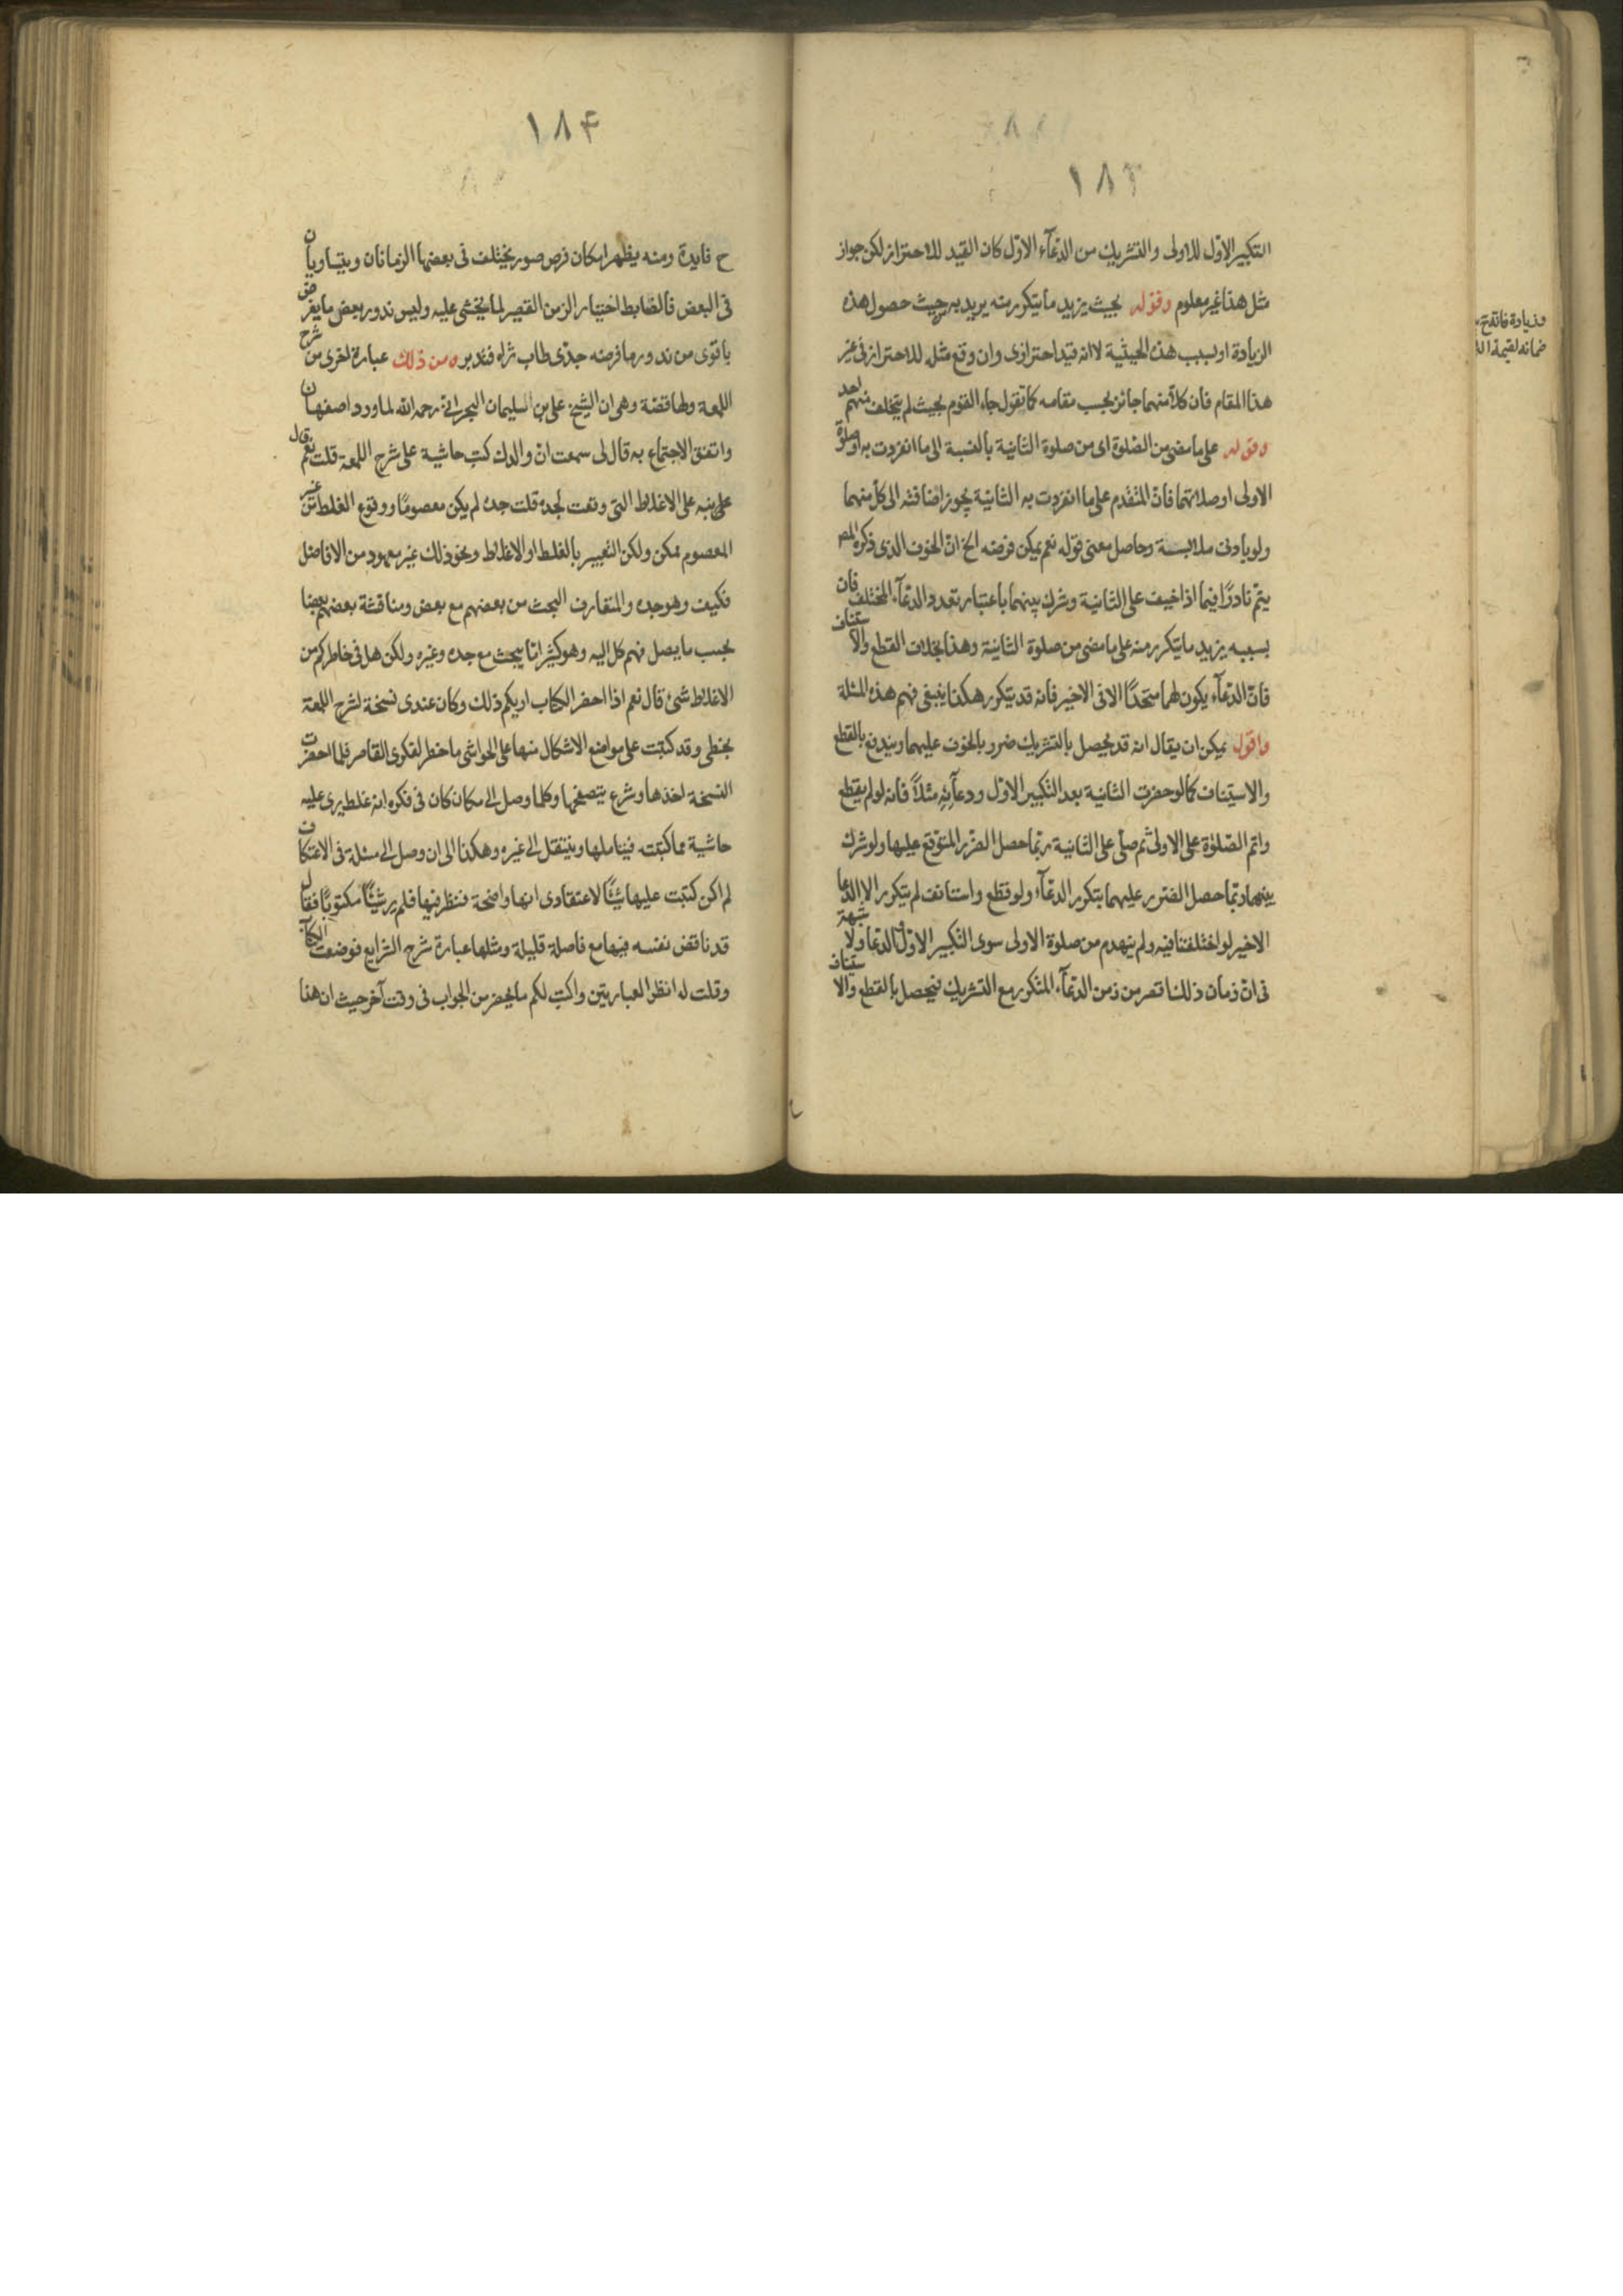 ١٨٣
التكبير الاول للاولى والتشريك من الدعآء الاول كان القيد للاحتراز لكن جواز
مثل هذا غير معلوم وقوله بحيث يزيد ما يتكرر منه يريد به حيث حصول هذه
الزيادة او بسبب هذه الحيثية لا انه قيد احترازى وان وقع مثله للاحتراز فى غير
هذا المقام فان كلاّ منهما جائز بحسب مقامه كما تقول جاء القوم بحيث لم يتخلف منهم احد
وقوله على ما مضى من الصلوة اى من صلوة الثانية بالنسبة الى ما انفردت به او صلوة
الاولى او صلاتهما فانّ المتقدم على ما انفردت به الثانية يجوز اضافته الى كل منهما
ولو بادنى ملابسة وحاصل معنى قوله نعم يمكن فرضه الخ انّ الخوف الذى ذكره المص
يتم نادرًا فيما اذا خيف على الثانية وشرك بينهما باعتبار تعدد الدعآء المختلف فان
بسببه يزيد ما يتكرر منه على ما مضى من صلوة الثانية وهذا بخلاف القطع والاستيناف
فانّ الدعآء يكون لهما متحدًا الا فى الاخير فانه قد يتكرر هكذا ينبغى فهم هذه المسئلة
واقول يمكن ان يقال انه قد يحصل بالتشريك ضرر بالخوف عليهما ويندفع بالقطع
والاستيناف كما لو حضرت الثانية بعد التكبير الاول ودعآئه مثلاً فانه لو لم يقطع
واتم الصلوة على الاولى ثم صلى على الثانية ربّما حصل الضرر المتوقع عليها ولو شرك
بينهما ربّما حصل الضرر عليهما بتكرر الدعآء ولو قطع واستانف لم يتكرر الا الدعا
الاخير لو اختلفتا فيه ولم ينهدم من صلوة الاولى سوى التكبير الاول والدعا ولا شبهة
فى انّ زمان ذلك اقصر من زمن الدعآء المتكرر مع التشريك فيحصل بالقطع والاستيناف
وزيادة فائدة
ضمانه لقيمة
١٨۴
ح فايدة ومنه يظهر امكان فرض صور يختلف فى بعضها الزمانان ويتساويان
فى البعض فالضابط اختيار الزمن القصير لما يخشى عليه وليس ندور بعض ما يفرض
باقوى من ندور ما فرضه جدّى طاب ثراه فتدبره ومن ذلك عبارة اخرى من شرح
اللمعة ولها قضة وهى ان الشيخ على بن السليمان البحرانى رحمه الله لما ورد اصفهان
واتفق الاجتماع به قال لى سمعت انّ والدك كتب حاشية على شرح اللمعة قلت نعم قال
على نبه على الاغلاط التى وقعت لجده قلت جده لم يكن معصومًا ووقوع الغلط من غير
المعصوم ممكن ولكن التعبير بالغلط او الاغلاط ونحو ذلك غير معهود من الافاضل
فكيف وهو جده والمتعارف البحث من بعضهم مع بعض ومناقشة بعضهم بعضا
بحسب ما يصل فهم كل اليه وهو كثيرا ما يبحث مع جده وغيره ولكن هل فى خاطركم من
الاغلاط شئ قال نعم اذا احضر الكتاب اريكم ذلك وكان عندى نسخة لشرح اللمعة
بخطى وقد كتبت على مواضع الاشكال منها على الحواشى ما خطر لفكرى القاصر فلما احضرت
النسخة اخذها وشرع يتصفحها وكلما وصل الى مكان كان فى فكره انه غلط يرى عليه
حاشية مما كتبته فيتاملها وينتقل الى غيره وهكذا الى ان وصل الى مسئلة فى الاعتكاف
لم اكن كتبت عليها شيئًا لاعتقادى انها واضحة فنظر فيها فلم ير شيئًا مكتوبًا فقال
قد ناقض نفسه فيها مع فاصلة قليلة ومثلها عبارة شرح الشرايع فوضعت الكتاب
وقلت له انظر العبارتين واكتب لكم ما يحضر من الجواب فى وقت آخر حيث ان هذا